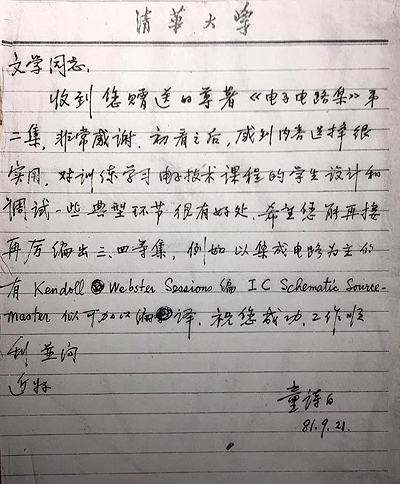 清華大学
文学同志，
收到您赠送的尊著《电子电路集》第
二集，非常感谢。初看之后，感到内容选择很
实用，对训练学习电子技术课程的学生设计和
调试一些典型环节很有好处。希望您能再接
再厉编出三、四等集，例如以集成电路为主的
有 Kendoll Webster Sessions 编 IC Schematic Source-
master 似可加以编译。祝您成功，工作顺
利 并问
近好
童诗白
81.9.21.